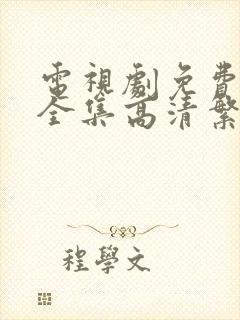 電視劇免費
全集高清繁
程學文